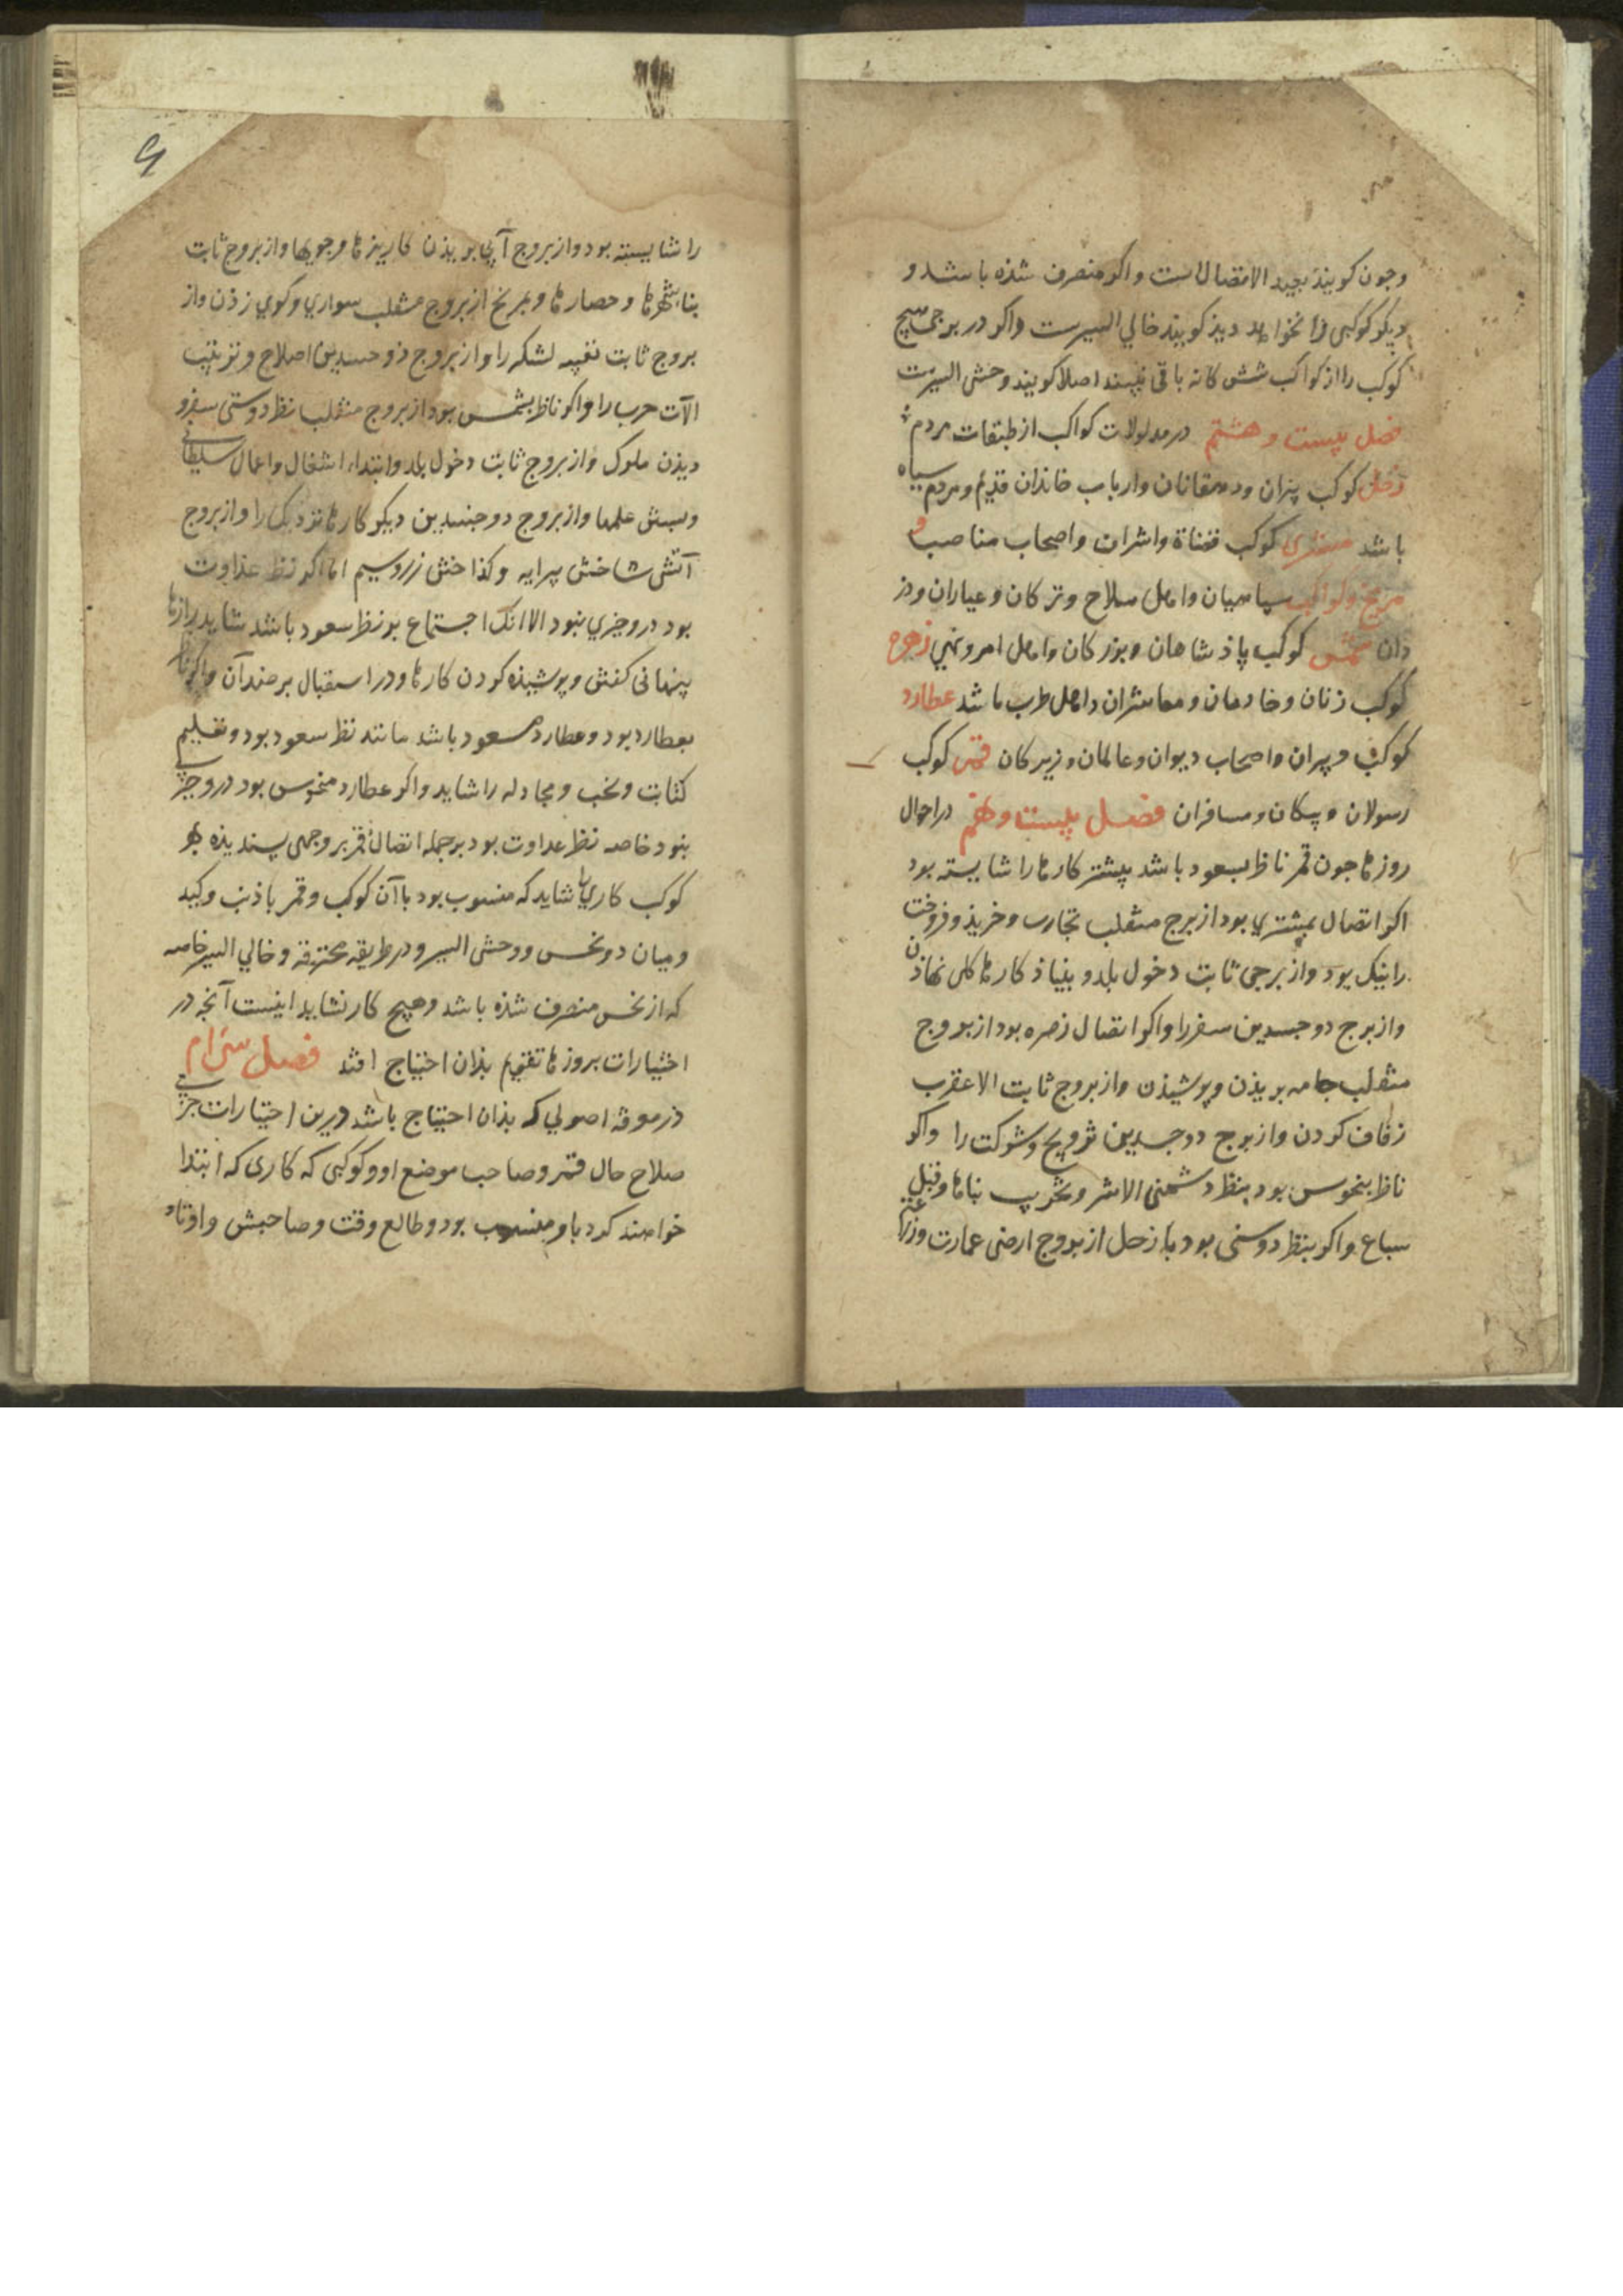 وجون کویند بعید الاتصال است واکر منصرف شذه باشد و
دیکر کوکبی را نخواهد دیذ کویند خالی السیرست واکر در برجی هیچ
کوکب را از کواکب شش کانه باقی نبیند اصلا کویند وحشی السیرست
فصل بیست و هشتم در مدلولات کواکب از طبقات مردم
زحل کوکب پیران ودهقانان وارباب خاندان قدیم ومردم سیاه
باشد مشتری کوکب قضاة واشراف واصحاب مناصب و
مریخ کوکب سپاهیان واهل سلاح وترکان وعیاران ودز
دان شمس کوکب پاذشاهان وبزرکان واهل امر ونهی زهره
کوکب زنان وخادمان ومعاشران واهل طرب باشد عطارد
کوکب دبیران واصحاب دیوان وعالمان وزیرکان قمر کوکب
رسولان وپیکان ومسافران فصل بیست ونهم در احوال
روزها جون قمر ناظر بسعود باشد بیشتر کارها را شایسته بود
اکر اتصال بمشتری بود از برج منقلب تجارت وخریذ وفروخت
را نیک بود واز برجی ثابت دخول بلد وبنیاذ کارها کلی نهاذن
واز برج دوجسدین سفر را واکر اتصال زهره بود از بروج
منقلب جامه بریذن وپوشیذن واز بروج ثابت الا عقرب
زفاف کردن واز بروج دوجسدین تزویج وشرکت را واکر
ناظر بنحوس بود بنظر دشمنی الا شر وتخریب بناها وقتل
سباع واکر بنظر دوستی بود با زحل از بروج ارضی عمارت وزراعت
را شایسته بود واز بروج آبی بریذن کاریزها وجویها واز بروج ثابت
بناء شهرها وحصارها وبمریخ از بروج منقلب سواری وکوی زذن واز
بروج ثابت تعبیه لشکر را واز بروج ذوجسدین اصلاح وترتیب
الآت حرب را واکر ناظر بشمس بود از بروج منقلب بنظر دوستی سفر و
دیذن ملوک واز بروج ثابت دخول بلد وابتداء اشغال واعمال سلطانی
وبستن علمها واز بروج دوجسدین دیکر کارها نزدیک را واز بروج
آتشی ساختن پیرایه وکذاختن زر وسیم اما اکر نظر عداوت
بود درو جیزی نبود الا انک اجتماع بر نظر سعود باشد شاید رازها
پنهانی کفتن وپوشیذه کردن کارها ودر استقبال بر ضد آن واکر ناظر
بعطارد بود وعطارد مسعود باشد مانند نظر سعود بود وتعلیم
کتابت ونخب ومجادله را شاید واکر عطارد منحوس بود درو جیزی
نبود خاصه نظر عداوت بود بر جمله اتصال قمر بر وجهی پسندیذه بهر
کوکب کاری را شاید که منسوب بود باآن کوکب وقمر باذنب وکید
ومیان دو نحس ووحشی السیر ودر طریقه محترقه وخالی السیر خاصه
که از نحس منصرف شذه باشد وهیچ کار نشاید اینست آنجه در
اختیارات بروزها تقویم بذان احتیاج افتد فصل سی ام
در معرفه اصولی که بذان احتیاج باشد درین اختیارات جزیی
صلاح حال قمر وصاحب موضع او وکوکبی که کاری که ابتدا
خواهند کرد باو منسوب بود وطالع وقت وصاحبش واوتاد